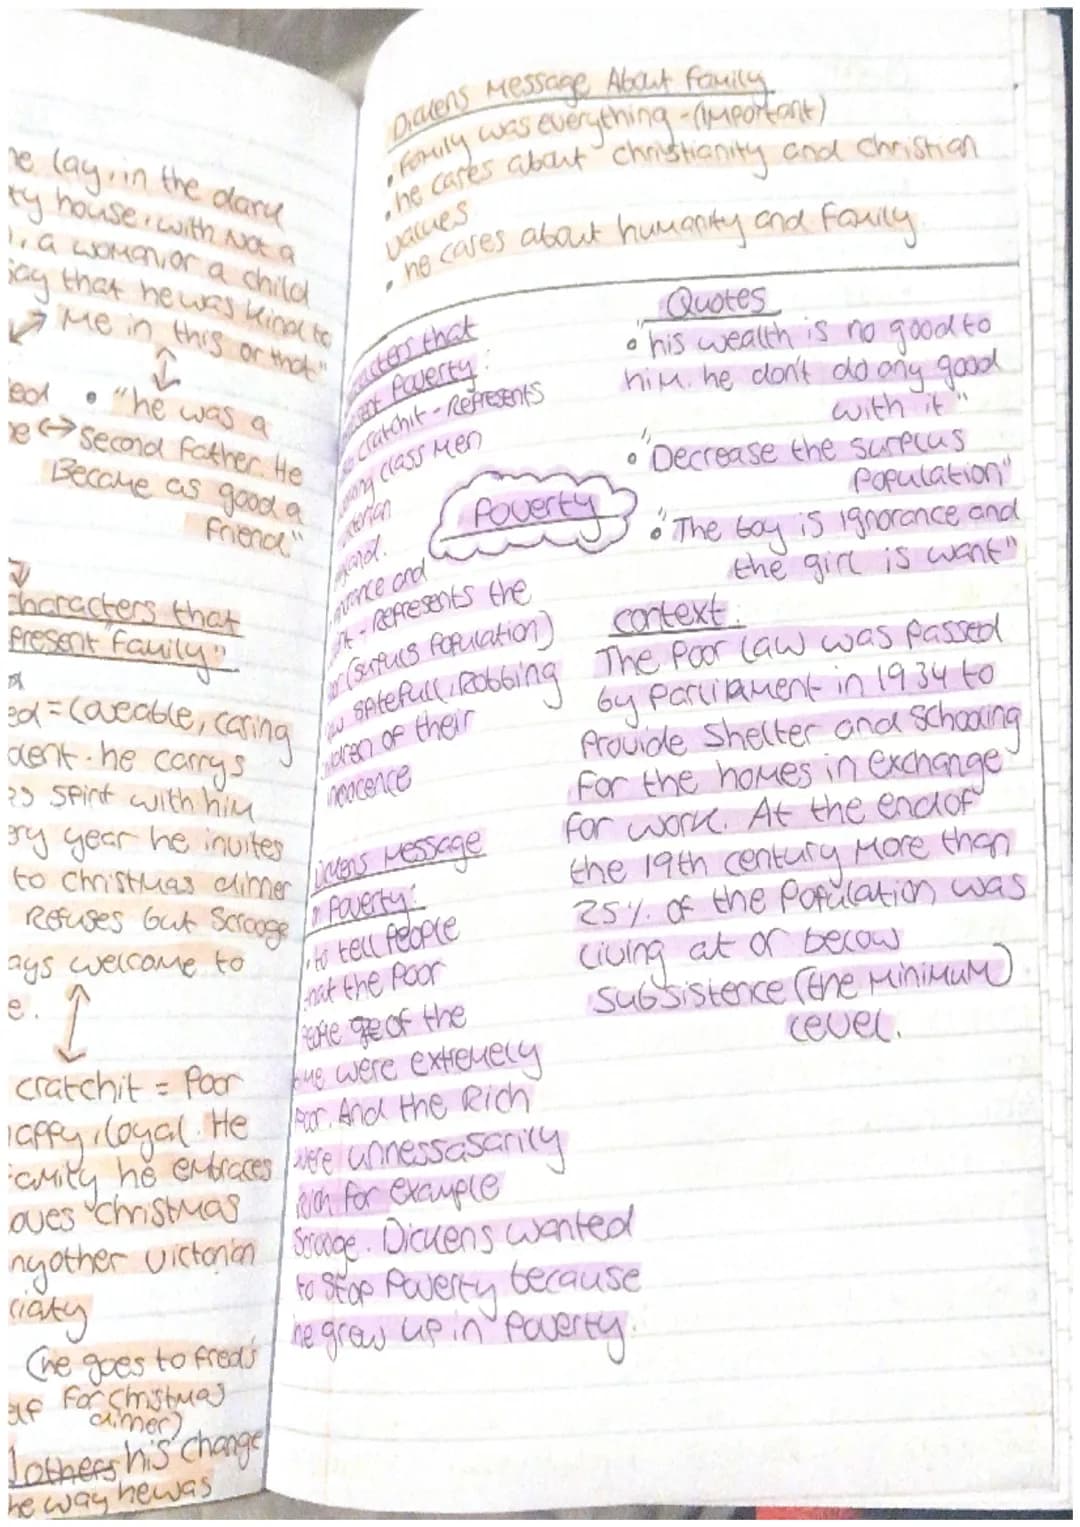 he lay, in the dark
ty house, with not a
, a woman, or a child
say that he was kind to
me in this or that"
"he was a
second father. He
Became as good a
friend."
characters that
present family:
ed = loveable, caring
dent. he carrys
spirit with him
ery year he invites
to christmas dinner
Refuses but Scrooge
ays welcome to
e.
cratchit = Poor
happy, loyal. He
family he embraces
oves christmas
nyother victorian
ciaty
(he goes to fred's
for christmas
dinner)
others his change
he way he was
Dickens Message About family
• family was everything - (important)
• he cares about christianity and christian
values
• he cares about humanity and family.
acters that
esent Poverty:
cratchit - Represents
king class Men
ctorian
gland.
norance and
nt - Represents the
or (surpuls Population)
spitefull, Robbing
ildren of their
innocence
Dickens Message
on Poverty:
• to tell People
that the Poor
People of the
time were extremely
Poor. And the Rich
were unnessasarily
Rich for example
Scrooge. Dickens wanted
to stop Poverty because
he grew up in Poverty.
Poverty
Quotes
• "his wealth is no good to
him. he don't do any good
with it"
• "Decrease the surplus
Population"
• "The boy is ignorance and
the girl is want"
context:
The Poor law was Passed
by Parliament in 1934 to
Provide Shelter and Schooling
for the homes in exchange
for work. At the end of
the 19th century More than
25% of the Population was
living at or below
Subsistence (the Minimum)
level.